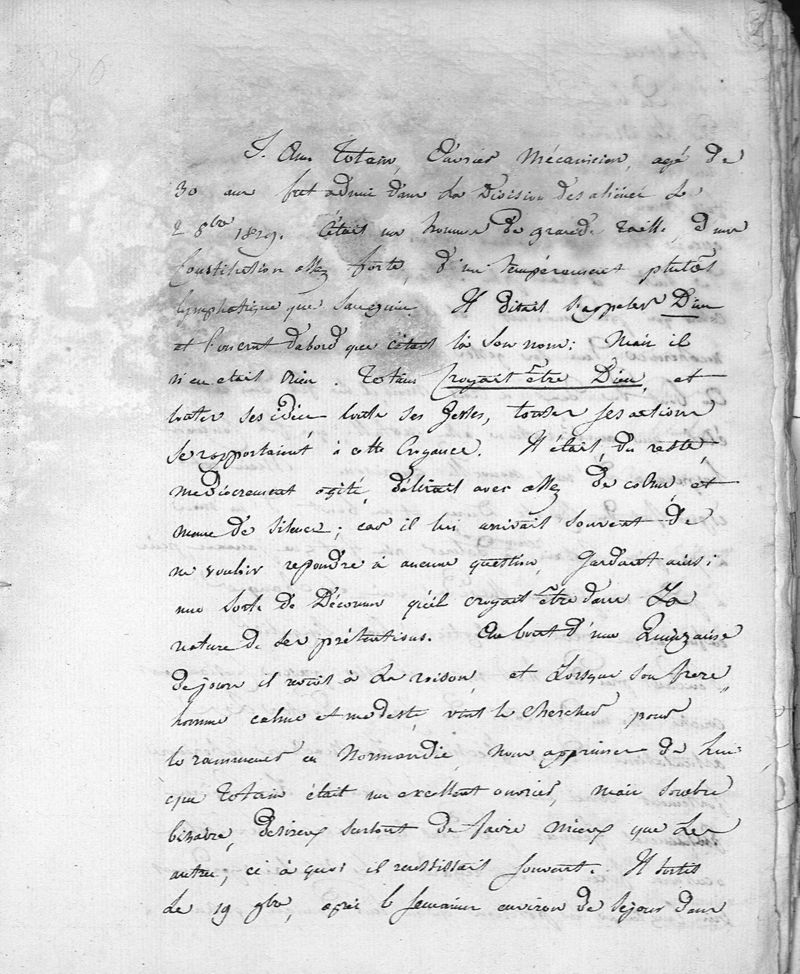 Totain, Ouvrier Mécanicien, agé de
30 ans fut admis dans la Division des aliénés le
2 8bre 1829. C'était un homme de grande taille, d'une
Constitution assez forte, d'un tempérement plutôt
lymphatique que Sanguin. Il disait s'appeler Dieu
et l'on crut d'abord que c'était là son nom; Mais il
n'en était rien. Totain Croyait être Dieu, et
toutes ses idées toute ses gestes, toutes ses actions
se rapportaient à cette Croyance. Il était, du reste,
médiocrement agité, délirait avec assez de calme, et
meme de silence; car il lui arrivait souvent de
ne vouloir repondre à aucune question, gardant ainsi
une sorte de Décorum qu'il croyait être dans La
nature de ses prétentions. Au bout d'une Quinzaine
de jours il revint à La raison, et Lorsque son frere,
homme calme et modeste, vint le chercher pour
le rammener en Normandie, nous apprimes de lui
que Totain était un excellent ouvrier, mais sombre
bizarre, désireux surtout de faire mieux que Les
autres; ce à quoi il reussissait souvent. Il sortit
Le 19 9bre, après 6 semaines environ de séjour dans